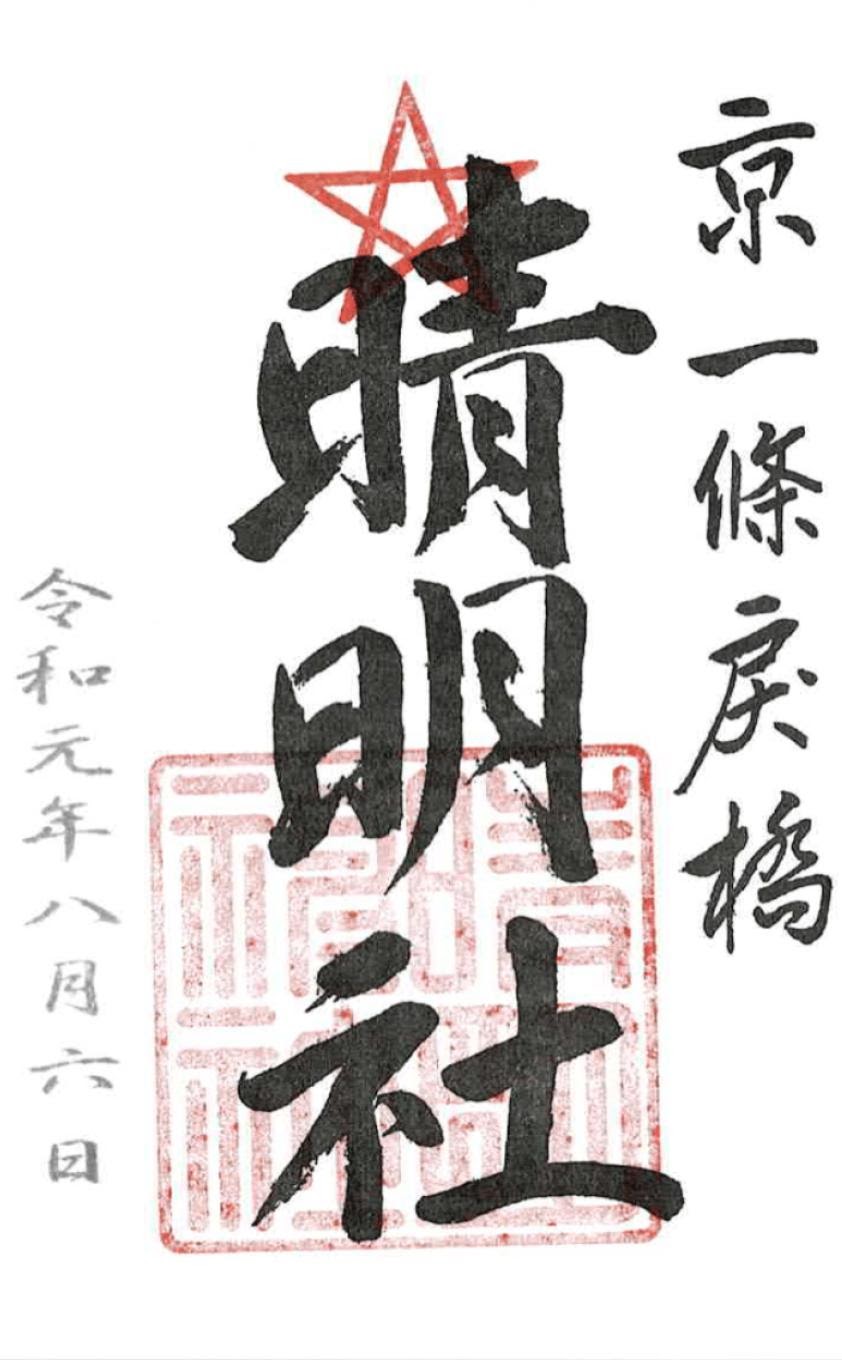 京一條戾橋
晴明社
令和元年八月六日